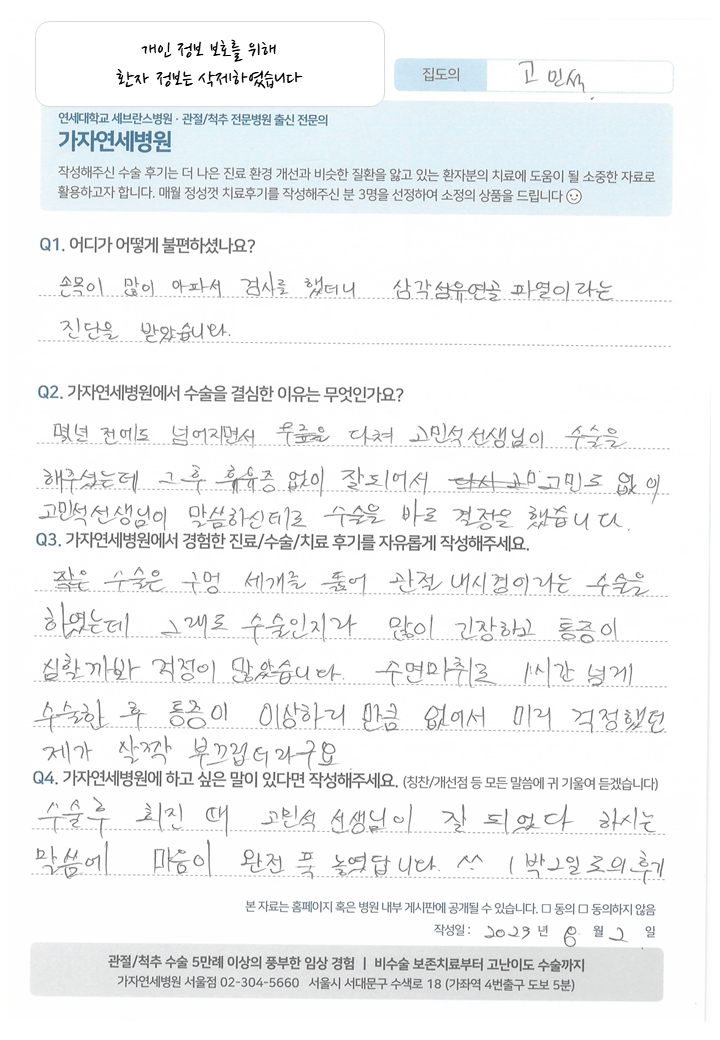 개인 정보 보호를 위해
환자 정보는 삭제하였습니다
집도의 고민석
연세대학교 세브란스병원 · 관절/척추 전문병원 출신 전문의
가자연세병원
작성해주신 수술 후기는 더 나은 진료 환경 개선과 비슷한 질환을 앓고 있는 환자분의 치료에 도움이 될 소중한 자료로
활용하고자 합니다. 매월 정성껏 치료후기를 작성해주신 분 3명을 선정하여 소정의 상품을 드립니다
Q1. 어디가 어떻게 불편하셨나요?
손목이 많이 아파서 검사를 했더니 삼각섬유연골 파열이라는
진단을 받았습니다.
Q2. 가자연세병원에서 수술을 결심한 이유는 무엇인가요?
몇년 전에도 넘어지면서 무릎을 다쳐 고민석선생님이 수술을
해주셨는데 그 후 휴유증 없이 잘되어서 고민도 없이
고민석선생님이 말씀하신데로 수술을 바로 결정을 했습니다.
Q3. 가자연세병원에서 경험한 진료/수술/치료 후기를 자유롭게 작성해주세요.
작은 수술은 구멍 세개를 뚫어 관절 내시경이라는 수술을
하였는데 그래도 수술인지라 많이 긴장하고 통증이
심할까봐 걱정이 많았습니다. 수면마취로 1시간 넘게
수술한 후 통증이 이상하리 만큼 없어서 미리 걱정했던
제가 살짝 부끄럽더라구요
Q4. 가자연세병원에 하고 싶은 말이 있다면 작성해주세요. (칭찬/개선점 등 모든 말씀에 귀 기울여 듣겠습니다)
수술후 회진 때 고민석 선생님이 잘 되었다 하시는
말씀에 마음이 완전 푹 놓였답니다. ^^ 1박2일로의 후기
본 자료는 홈페이지 혹은 병원 내부 게시판에 공개될 수 있습니다. □ 동의 □ 동의하지 않음
작성일 : 2023 년 8 월 2 일
관절/척추 수술 5만례 이상의 풍부한 임상 경험 | 비수술 보존치료부터 고난이도 수술까지
가자연세병원 서울점 02-304-5660 서울시 서대문구 수색로 18 (가좌역 4번출구 도보 5분)